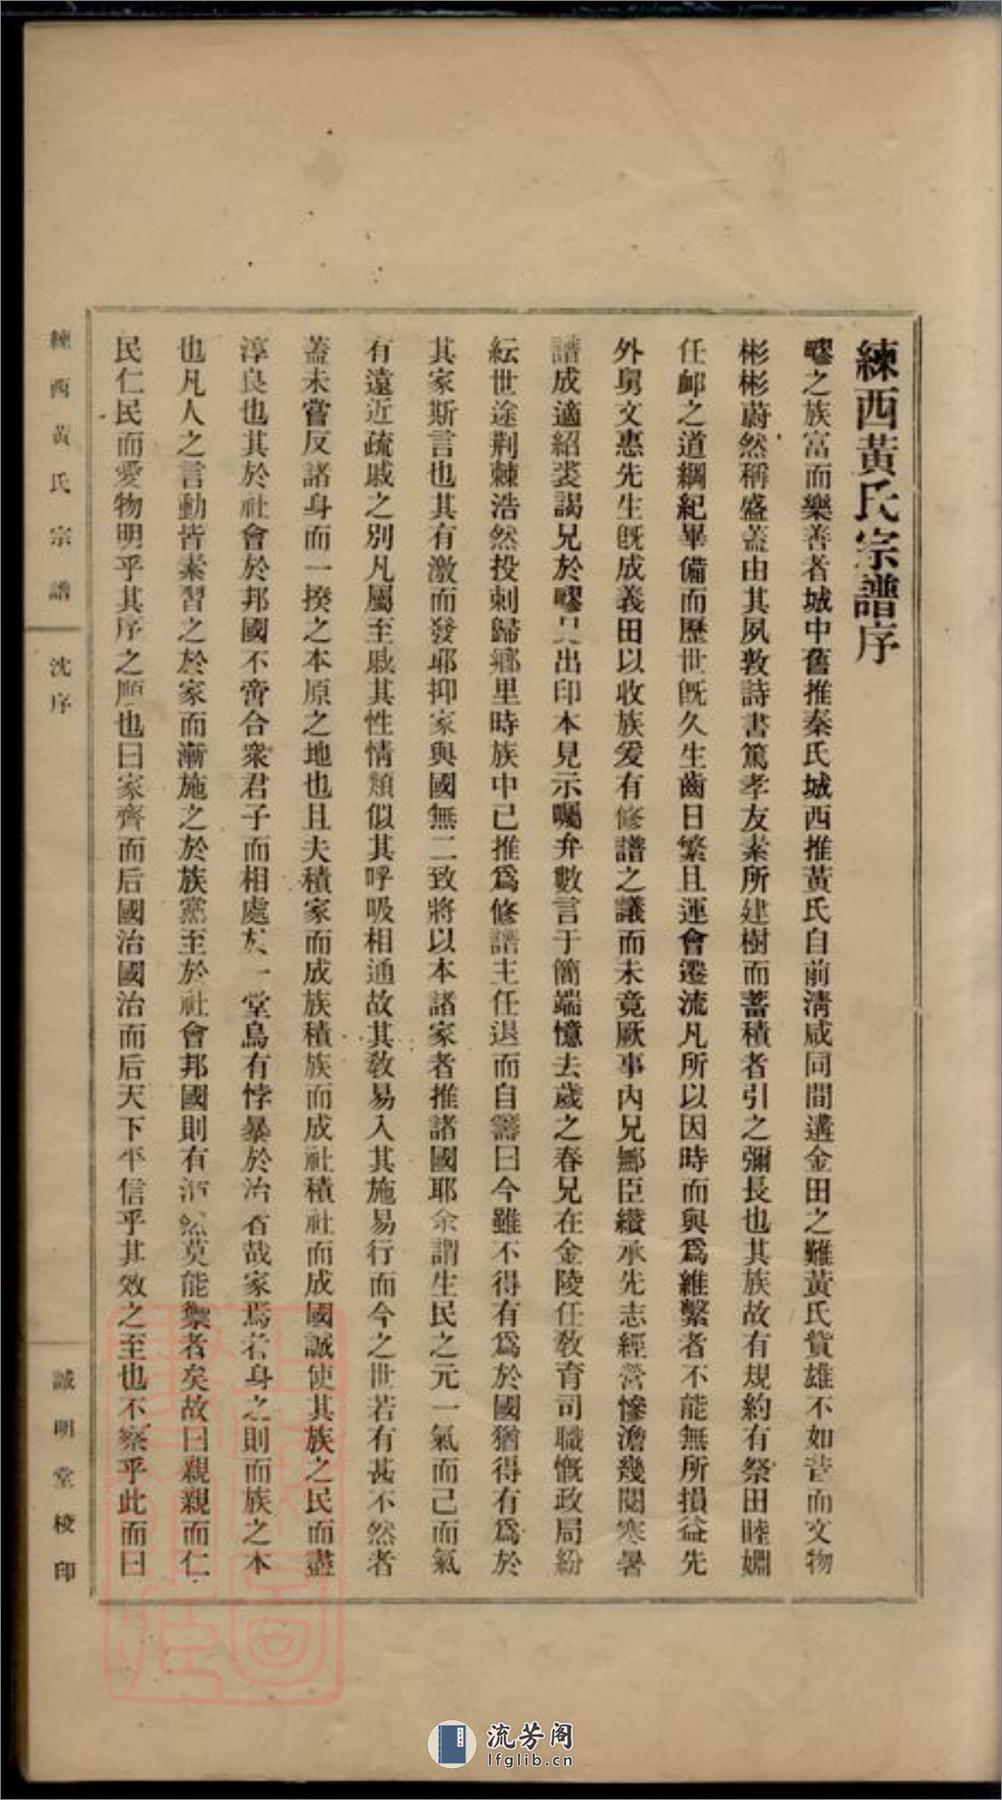 練西黃氏宗譜序
疁之族富而樂善者城中舊推秦氏城西推黃氏自前淸咸同間遘金田之難黃氏貲雄不如昔而文物
彬彬蔚然稱盛蓋由其夙敦詩書篤孝友素所建樹而蓄積者引之彌長也其族故有規約有祭田睦婣
任卹之道綱紀畢備而歷世旣久生齒日繁且運會遷流凡所以因時而與爲維繫者不能無所損益先
外舅文惠先生旣成義田以收族爰有修譜之議而未竟厥事內兄鄦臣纘承先志經營慘澹幾閱寒暑
譜成適紹裘謁兄於疁兄出印本見示囑弁數言于簡端憶去歲之春兄在金陵任敎育司職慨政局紛
紜世途荆棘浩然投刺歸鄕里時族中已推爲修譜主任退而自籌曰今雖不得有爲於國猶得有爲於
其家斯言也其有激而發耶抑家與國無二致將以本諸家者推諸國耶余謂生民之元一氣而已而氣
有遠近疏戚之別凡屬至戚其性情類似其呼吸相通故其敎易入其施易行而今之世若有甚不然者
蓋未嘗反諸身而一揆之本原之地也且夫積家而成族積族而成社積社而成國誠使其族之民而盡
淳良也其於社會於邦國不啻合衆君子而相處於一堂烏有悖暴於治者哉家焉者身之則而族之本
也凡人之言動皆素習之於家而漸施之於族黨至於社會邦國則有沛然莫能禦者矣故曰親親而仁
民仁民而愛物明乎其序之順也曰家齊而后國治國治而后天下平信乎其效之至也不察乎此而曰
練西黃氏宗譜
沈序
誠明堂校印
流芳阁
lfglib.cn